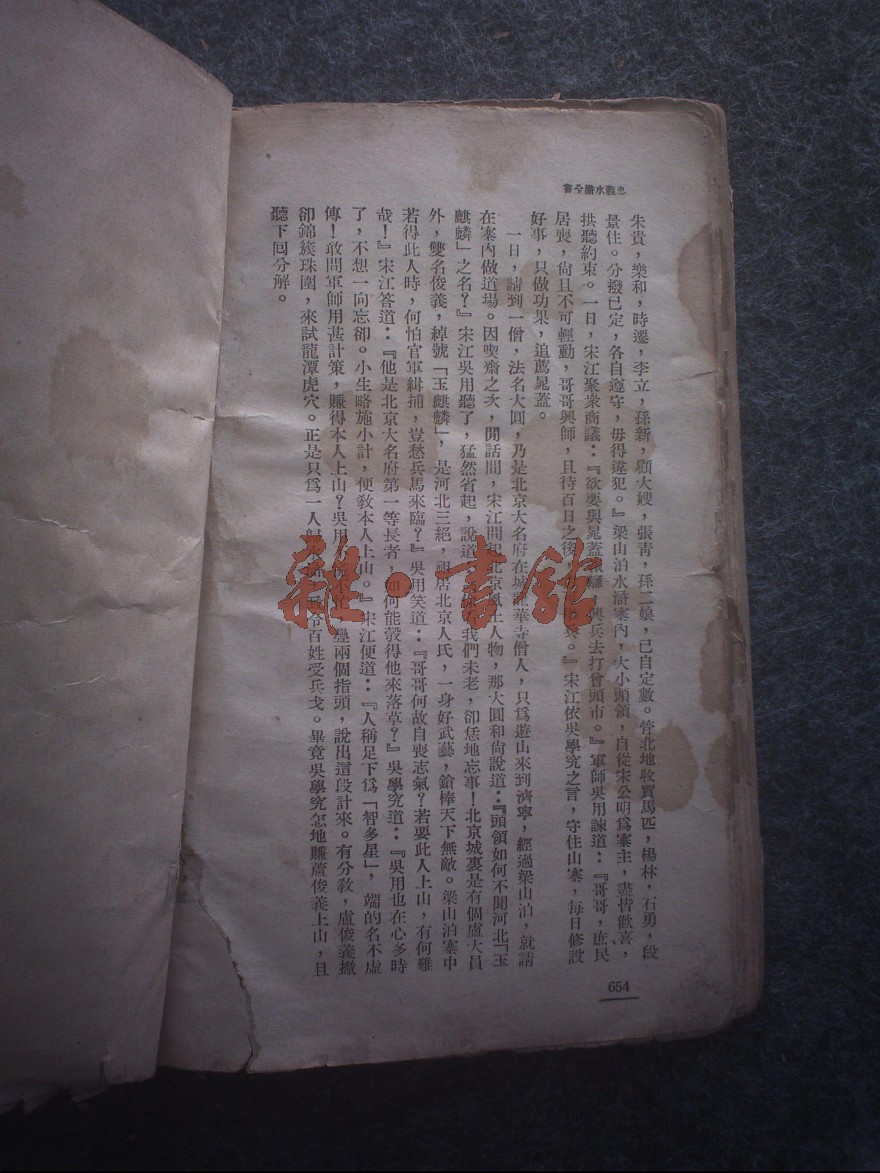 忠義水滸全書
朱貴，樂和，時遷，李立，孫新，顧大嫂，張青，孫二娘，已自定數。管北地收買馬匹，楊林，石勇，段
景住。分撥已定，各自遵守，毋得違犯。』梁山泊水滸寨內，大小頭領，自從宋公明爲寨主，盡皆歡喜，
拱聽約束。一日，宋江聚衆商議：『欲要與晁蓋報讎，興兵去打曾頭市。』軍師吳用諫道：『哥哥，庶民
居喪，尙且不可輕動，哥哥興師，且待百日之後，兵。』宋江依吳學究之言，守住山寨，每日修設
好事，只做功果，追薦晁蓋。
一日，請到一僧，法名大圓，乃是北京大名府在城龍華寺僧人，只爲遊山來到濟寧，經過梁山泊，就請
在寨內做道場。因喫齋之次，閒話間，宋江問起北京風土人物，那大圓和尙說道：『頭領如何不聞河北「玉
麒麟」之名？』宋江吳用聽了，猛然省起，說道：我們未老，卻恁地忘事！北京城裏是有個盧大員
外，雙名俊義，綽號「玉麒麟」，是河北三絕，祖居北京人氏，一身好武藝，鎗棒天下無敵。梁山泊寨中
若得此人時，何怕官軍緝捕，豈愁兵馬來臨？』吳用笑道：『哥哥何故自喪志氣？若要此人上山，有何難
哉！』宋江答道：『他是北京大名府第一等長者，如何能彀得他來落草？』吳學究道：『吳用也在心多時
了，不想一向忘卻。小生略施小計，便敎本人上山。』宋江便道：『人稱足下爲「智多星」，端的名不虛
傳！敢問軍師用甚計策，賺得本人上山？吳用疊兩個指頭，說出這段計來。有分敎，盧俊義撇
卻錦簇珠圍，來試龍潭虎穴。正是只爲一人歸水滸，致令百姓受兵戈。畢竟吳學究怎地賺蘆俊義上山，且
聽下囘分解。
654
雜·書館